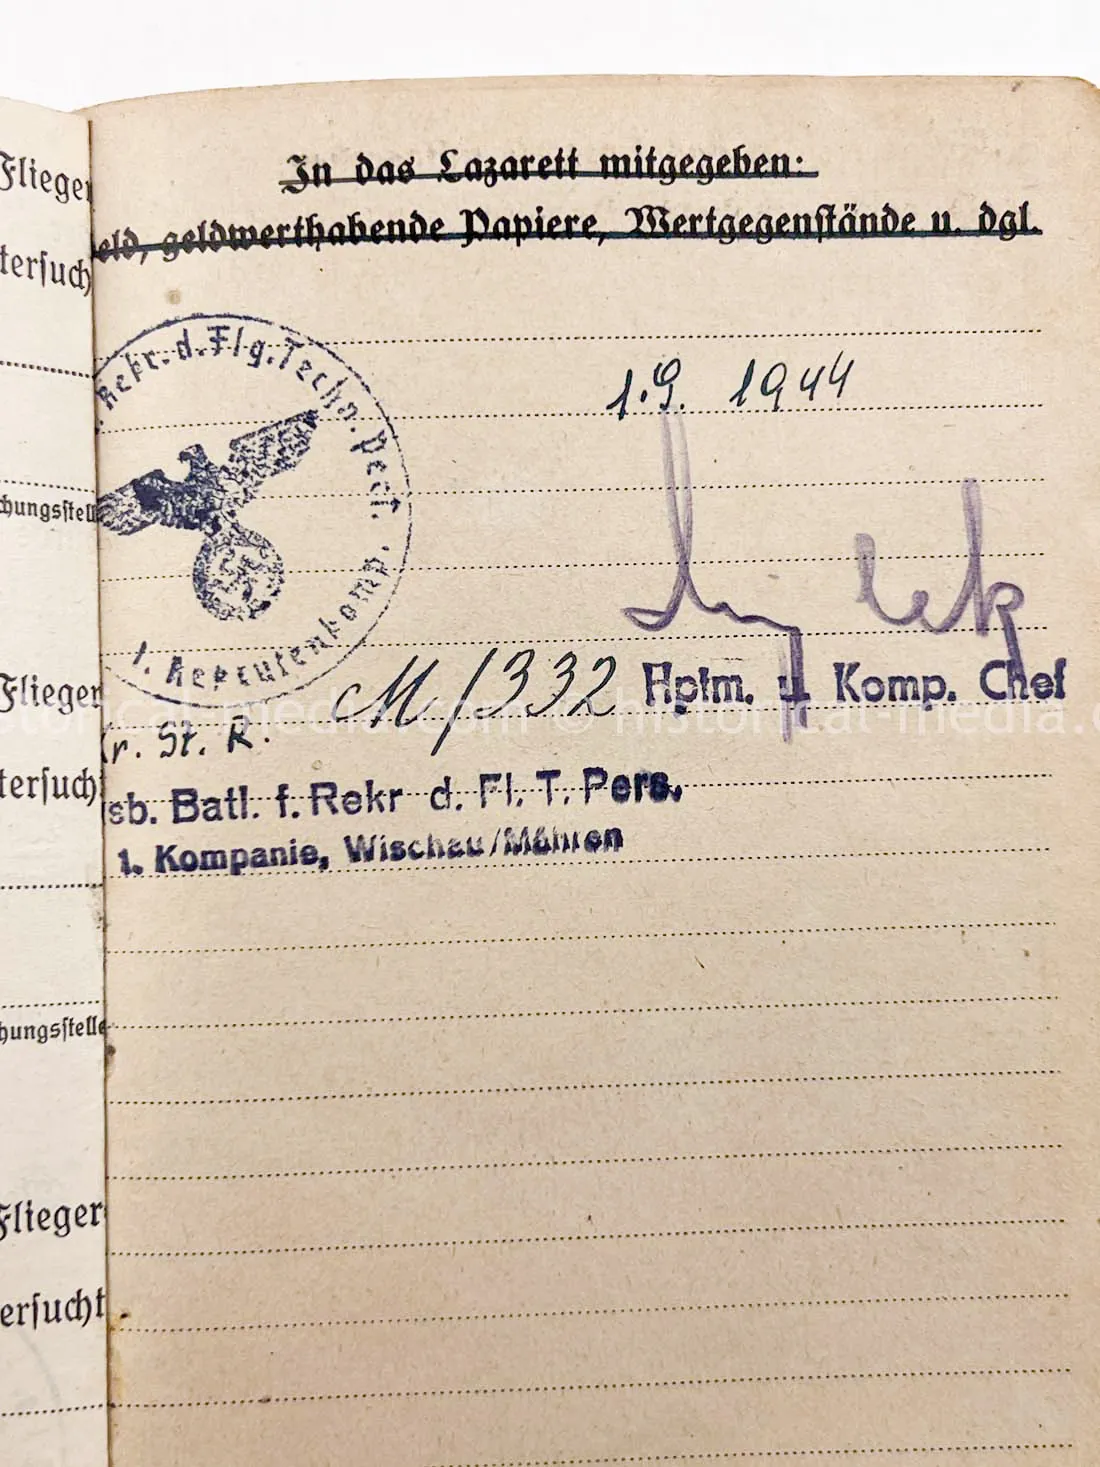 Flieger
In das Lazarett mitgegeben:
eld, geldwerthabende Papiere, Wertgegenstände u. dgl.
tersuch
Rekr. d. Flg. Techn. Pers.
1. Rekrutenkomp.
1.9. 1944
chungsstell
Flieger
M/332 Hptm. u Komp. Chef
historical-media.com © historical-media.c
r. St. R.
tersucht
sb. Batl. f. Rekr d. Fl. T. Pers.
1. Kompanie, Wischau/Mähren
hungsstelle
Flieger
ersucht